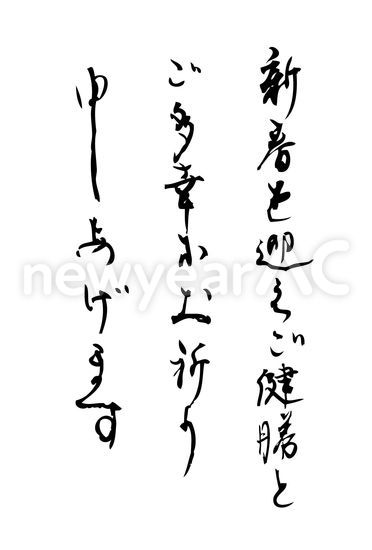 新春を迎えご健勝と
ご多幸をお祈り
申しあげます
newyearAC